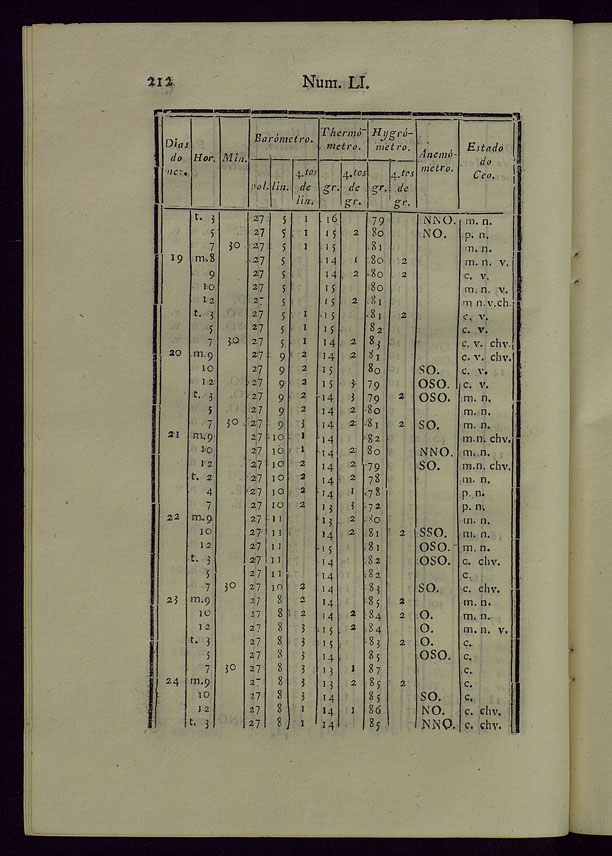 212 Num. LI.
Dias do mez. Hor. Min. Barómetro. Thermómetro. Hygrómetro. Anemómetro. Estado do Ceo.
pol. lin. 4.tos de lin. gr. 4.tos de gr. gr. 4.tos de gr.
t. 3 27 5 1 16 79 NNO. m. n.
5 27 5 1 15 2 80 NO. p. n.
7 30 27 5 1 15 81 m. n.
19 m.8 27 5 14 1 80 2 m. n. v.
9 27 5 14 2 80 2 c. v.
10 27 5 15 80 m. n. v.
12 27 5 15 2 81 m n.v.ch.
t. 3 27 5 1 15 81 2 c. v.
5 27 5 1 15 82 c. v.
7 30 27 5 1 14 2 83 c. v. chv.
20 m.9 27 9 2 14 2 81 c. v. chv.
10 27 9 2 15 80 SO. c. v.
12 27 9 2 15 3 79 OSO. c. v.
t. 3 27 9 2 14 3 79 2 OSO. m. n.
5 27 9 2 14 2 80 m. n.
7 30 27 9 3 14 2 81 2 SO. m. n.
21 m.9 27 10 1 14 82 m.n. chv.
10 27 10 1 14 2 80 NNO. m. n.
12 27 10 2 14 2 79 SO. m.n. chv.
t. 2 27 10 2 14 2 78 m. n.
4 27 10 2 14 1 78 p. n.
7 27 10 2 13 3 72 p. n.
22 m.9 27 11 13 2 80 m. n.
10 27 11 14 2 81 2 SSO. m. n.
12 27 11 15 81 OSO. m. n.
t. 3 27 11 14 82 OSO. c. chv.
5 27 11 14 82 c.
7 30 27 10 2 14 83 SO. c. chv.
23 m.9 27 8 2 14 85 2 m. n.
10 27 8 2 14 2 84 2 O. m. n.
12 27 8 3 15 2 84 O. m. n. v.
t. 3 27 8 3 15 83 2 O. c.
5 27 8 3 14 85 OSO. c.
7 30 27 8 3 13 1 87 c.
24 m.9 27 8 3 13 2 85 2 c.
10 27 8 3 14 85 SO. c.
12 27 8 1 14 1 86 NO. c. chv.
t. 3 27 8 1 14 85 NNO. c. chv.